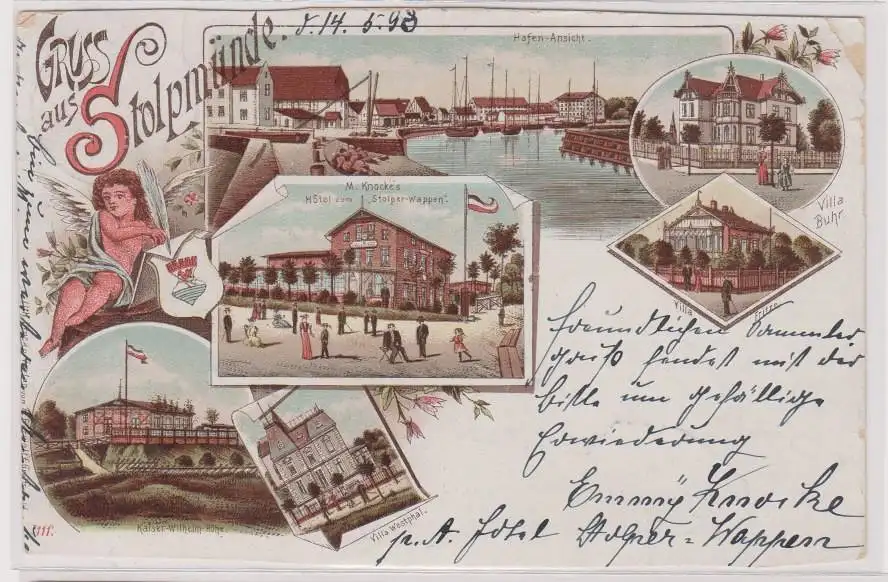 Gruss
aus
Stolpmünde.
d. 14. 5. 98
Hafen-Ansicht.
M. Knocke's
Hôtel zum „Stolper-Wappen".
Villa
Buhr
Villa
Kaiser-Wilhelm-Höhe.
Villa Westphal.
Freundlichen Sammler
gruß sendet mit der
bitte um gefällige
Erwiederung
Emmÿ Knocke
p. A. Hotel Stolper-Wappen